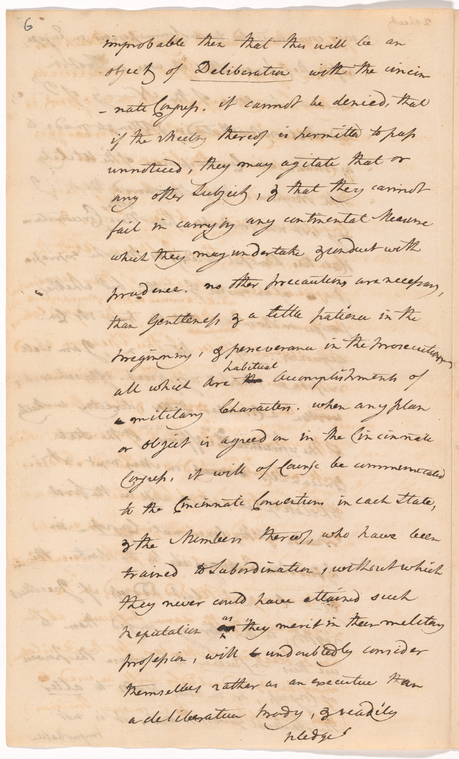 6
improbable then that this will be an
object of Deliberation with the cincin-
-nate Congress. it cannot be denied, that
if the Meeting thereof is permitted to pass
unnoticed, they may agitate that or
any other Subject, & that they cannot
fail in carrying any continental Measure
which they may undertake & conduct with
prudence. no other precautions are necessary,
than Gentleness & a little patience in the
beginning, & perseverance in the prosecution,
habitual
all which are accomplishments of
military Characters. when any plan
or object is agreed on in the Cincinnate
Congress, it will of Course be communicated
to the Cincinnate Conventions in each State,
& the Members thereof, who have been
trained to Subordination, without which
they never could have attained such
as
Reputation they merit in their military
profession, will undoubtedly consider
themselves rather as an executive than
a deliberative body, & readily
pledge